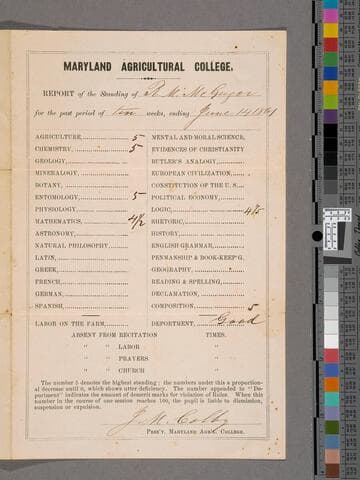 MARYLAND AGRICULTURAL COLLEGE.
REPORT of the Standing of R. M. McGregor
for the past period of ten weeks, ending June 14 1861
AGRICULTURE, 5
CHEMISTRY, 5
GEOLOGY,
MINERALOGY,
BOTANY,
ENTOMOLOGY, 5
PHYSIOLOGY,
MATHEMATICS, 4½
ASTRONOMY,
NATURAL PHILOSOPHY,
LATIN,
GREEK,
FRENCH,
GERMAN,
SPANISH,
MENTAL AND MORAL SCIENCE,
EVIDENCES OF CHRISTIANITY
BUTLER'S ANALOGY,
EUROPEAN CIVILIZATION,
CONSTITUTION OF THE U. S.
POLITICAL ECONOMY,
LOGIC,
RHETORIC,
HISTORY,
ENGLISH GRAMMAR,
PENMANSHIP & BOOK-KEEP'G.
GEOGRAPHY,
READING & SPELLING,
DECLAMATION,
COMPOSITION, 5
LABOR ON THE FARM, DEPORTMENT, Good
ABSENT FROM RECITATION TIMES.
" " LABOR "
" " PRAYERS "
" " CHURCH "
The number 5 denotes the highest standing; the numbers under this a proportional decrease until 0, which shows utter deficiency. The number appended to "Deportment" indicates the amount of demerit marks for violation of Rules. When this number in the course of one session reaches 100, the pupil is liable to dismission, suspension or expulsion.
J. M. Colby
PRES'T. MARYLAND AGRIC. COLLEGE.